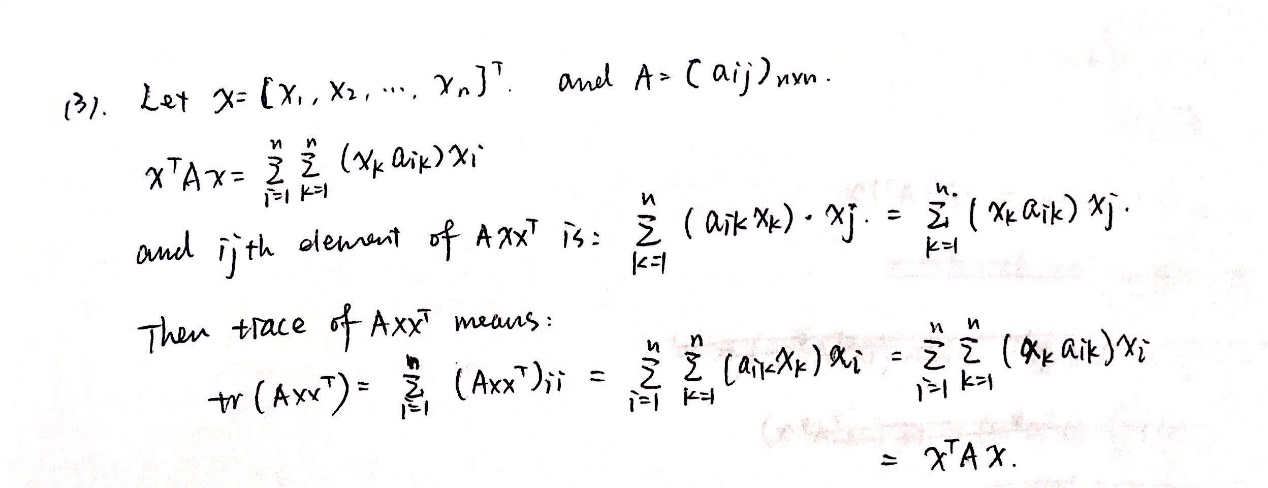 (3). Let x = [x₁, x₂, ..., xₙ]ᵀ. and A = (aij)n×n.
xᵀAx = ∑ᵢ₌₁ⁿ ∑ₖ₌₁ⁿ (xₖ aᵢₖ) xᵢ
and ijth element of Axxᵀ is: ∑ₖ₌₁ⁿ (aᵢₖ xₖ) · xⱼ. = ∑ₖ₌₁ⁿ (xₖ aᵢₖ) xⱼ.
Then trace of Axxᵀ means:
tr(Axxᵀ) = ∑ᵢ₌₁ⁿ (Axxᵀ)ᵢᵢ = ∑ᵢ₌₁ⁿ ∑ₖ₌₁ⁿ (aᵢₖ xₖ) xᵢ = ∑ᵢ₌₁ⁿ ∑ₖ₌₁ⁿ (xₖ aᵢₖ) xᵢ
= xᵀAx.